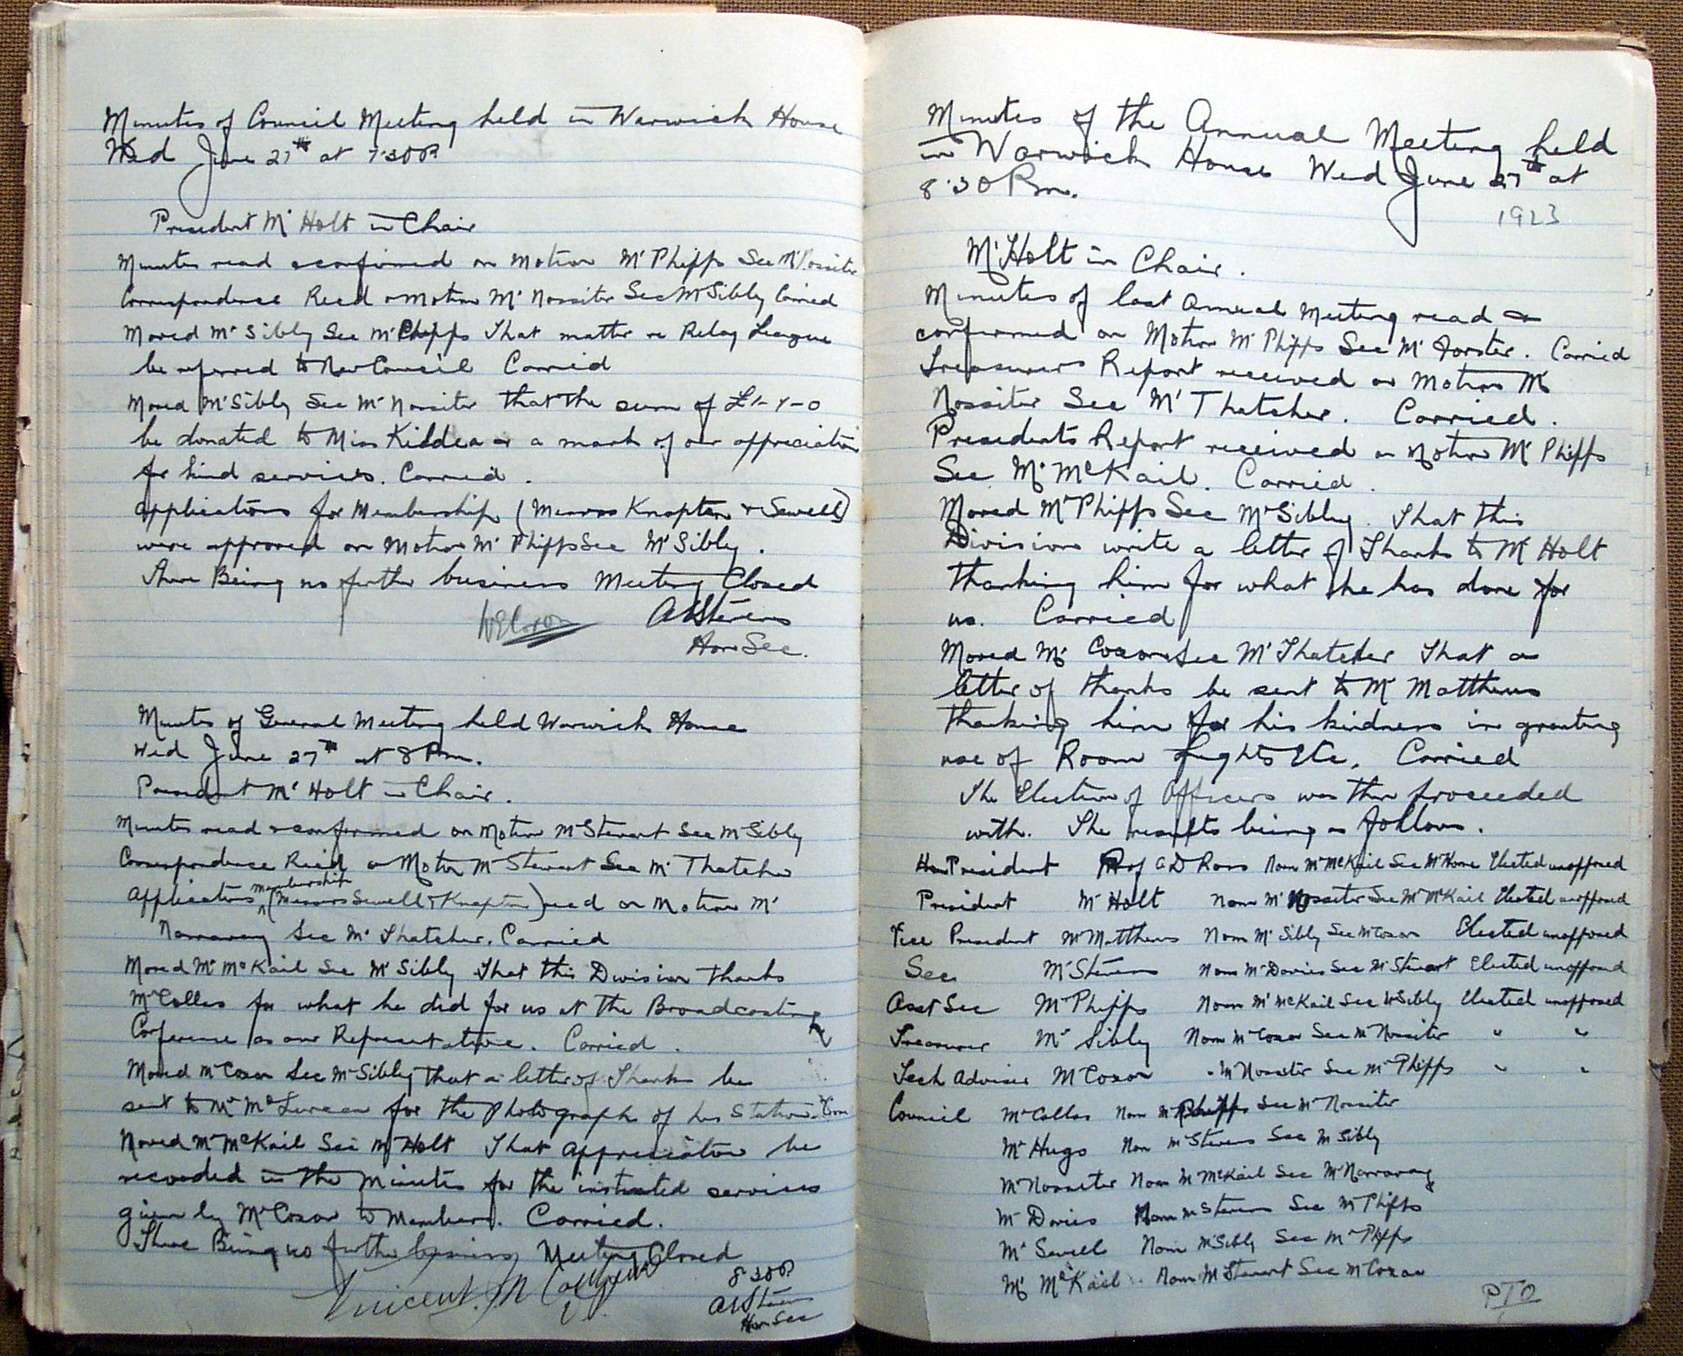 Minutes of Council Meeting held in Warwick House
Wed June 27th at 7.30 P.
President Mr Holt in Chair
Minutes read & confirmed on Motion Mr Phipps Sec Mr Nossiter
Correspondence Read on Motion Mr Nossiter Sec Mr Sibly Carried
Moved Mr Sibly Sec Mr Phipps That matter re Relay League
be referred to New Council Carried
Moved Mr Sibly Sec Mr Nossiter that the sum of £1-1-0
be donated to Miss Kiddea as a mark of our appreciation
for kind services. Carried.
Applications for Membership (Messrs Knapton & Sewell)
were approved on Motion Mr Phipps Sec Mr Sibly.
There Being no further business Meeting Closed
A Stevens
Hon Sec.
Minutes of General Meeting held Warwick House
Wed June 27th at 8 Pm.
President Mr Holt in Chair.
Minutes read & confirmed on Motion Mr Stewart Sec Mr Sibly
Correspondence Read on Motion Mr Stewart Sec Mr Thatcher
Applications membership (Messrs Sewell & Knapton) read on Motion Mr
Narraway Sec Mr Thatcher. Carried
Moved Mr McKail Sec Mr Sibly That this Division thanks
Mr Collas for what he did for us at the Broadcasting
Conference as our Representative. Carried.
Moved Mr Coxon Sec Mr Sibly that a letter of Thanks be
sent to Mr for the Photograph of his Station.
Moved Mr McKail Sec Mr Holt That appreciation be
recorded in the Minutes for the services
given by Mr Coxon to Members. Carried.
There Being no further business Meeting Closed
8.30 P.
A Stevens
Hon Sec
Minutes of the Annual Meeting held
in Warwick House Wed June 27th at
8.30 Pm.
1923
Mr Holt in Chair.
Minutes of last Annual Meeting read &
confirmed on Motion Mr Phipps Sec Mr Forster. Carried
Treasurers Report received on Motion Mr
Nossiter Sec Mr Thatcher. Carried.
Presidents Report received on Motion Mr Phipps
Sec Mr McKail. Carried.
Moved Mr Phipps Sec Mr Sibly. That this
Division write a letter of Thanks to Mr Holt
thanking him for what he has done for
us. Carried
Moved Mr Coxon Sec Mr Thatcher That a
letter of thanks be sent to Mr Matthews
thanking him for his kindness in granting
use of Room Lights Etc. Carried
The Election of Officers was then proceeded
with. The results being as follows.
Hon President Prof A D Ross Nom Mr McKail Sec Mr Elected unopposed
President Mr Holt Nom Mr Nossiter Sec Mr McKail Elected unopposed
Vice President Mr Matthews Nom Mr Sibly Sec Mr Coxon Elected unopposed
Sec Mr Stevens Nom Mr Davies Sec Mr Stewart Elected unopposed
Asst Sec Mr Phipps Nom Mr McKail Sec Mr Sibly Elected unopposed
Treasurer Mr Sibly Nom Mr Coxon Sec Mr Nossiter " "
Tech Adviser Mr Coxon " Mr Nossiter Sec Mr Phipps " "
Council Mr Collas Nom Mr Phipps Sec Mr Nossiter
Mr Hugo Nom Mr Stevens Sec Mr Sibly
Mr Nossiter Nom Mr McKail Sec Mr Narraway
Mr Davies Nom Mr Stevens Sec Mr Phipps
Mr Sewell Nom Mr Sibly Sec Mr Phipps
Mr McKail Nom Mr Stewart Sec Mr Coxon
PTO